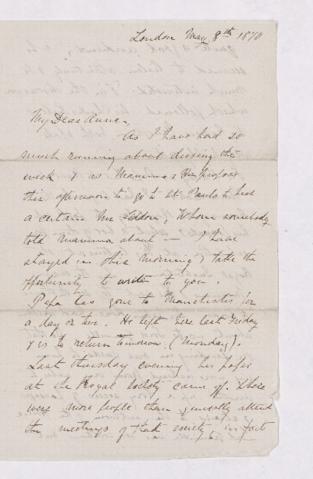 London May 8th 1870
My Dear Anne,
As I have had so
much running about during the
week & as Mamma & Wm propose
this afternoon to go to St Pauls to hear
a certain Mr Liddon, whom somebody
told Mamma about — I have
stayed in this morning & take the
opportunity to write to you.
Papa has gone to Manchester for
a day or two. He left here last Friday
& is to return tomorrow. (Monday).
Last Thursday evening his paper
at the Royal Society came off. There
were more people than generally attend
the meetings of that society, in fact